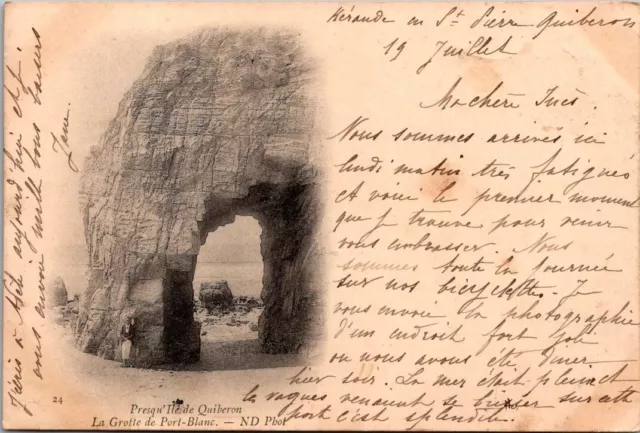 Kérande en St Pierre Quiberon
19 Juillet
Ma chère Inès.
Nous sommes arrivés ici
lundi matin très fatigués
et voici le premier moment
que je trouve pour venir
vous embrasser. Nous
sommes toute la journée
sur nos bicyclettes. Je
vous envoie la photographie
d'un endroit fort joli
ou nous avons été dîner
hier soir. La mer était pleine et
les vagues venaient se briser sur cette
porte c'est splendide.
hier et
à tête aujourd'hui
vous envoie mille bons baisers
Jane
24
Presqu'Ile de Quiberon
La Grotte de Port-Blanc. — ND Phot